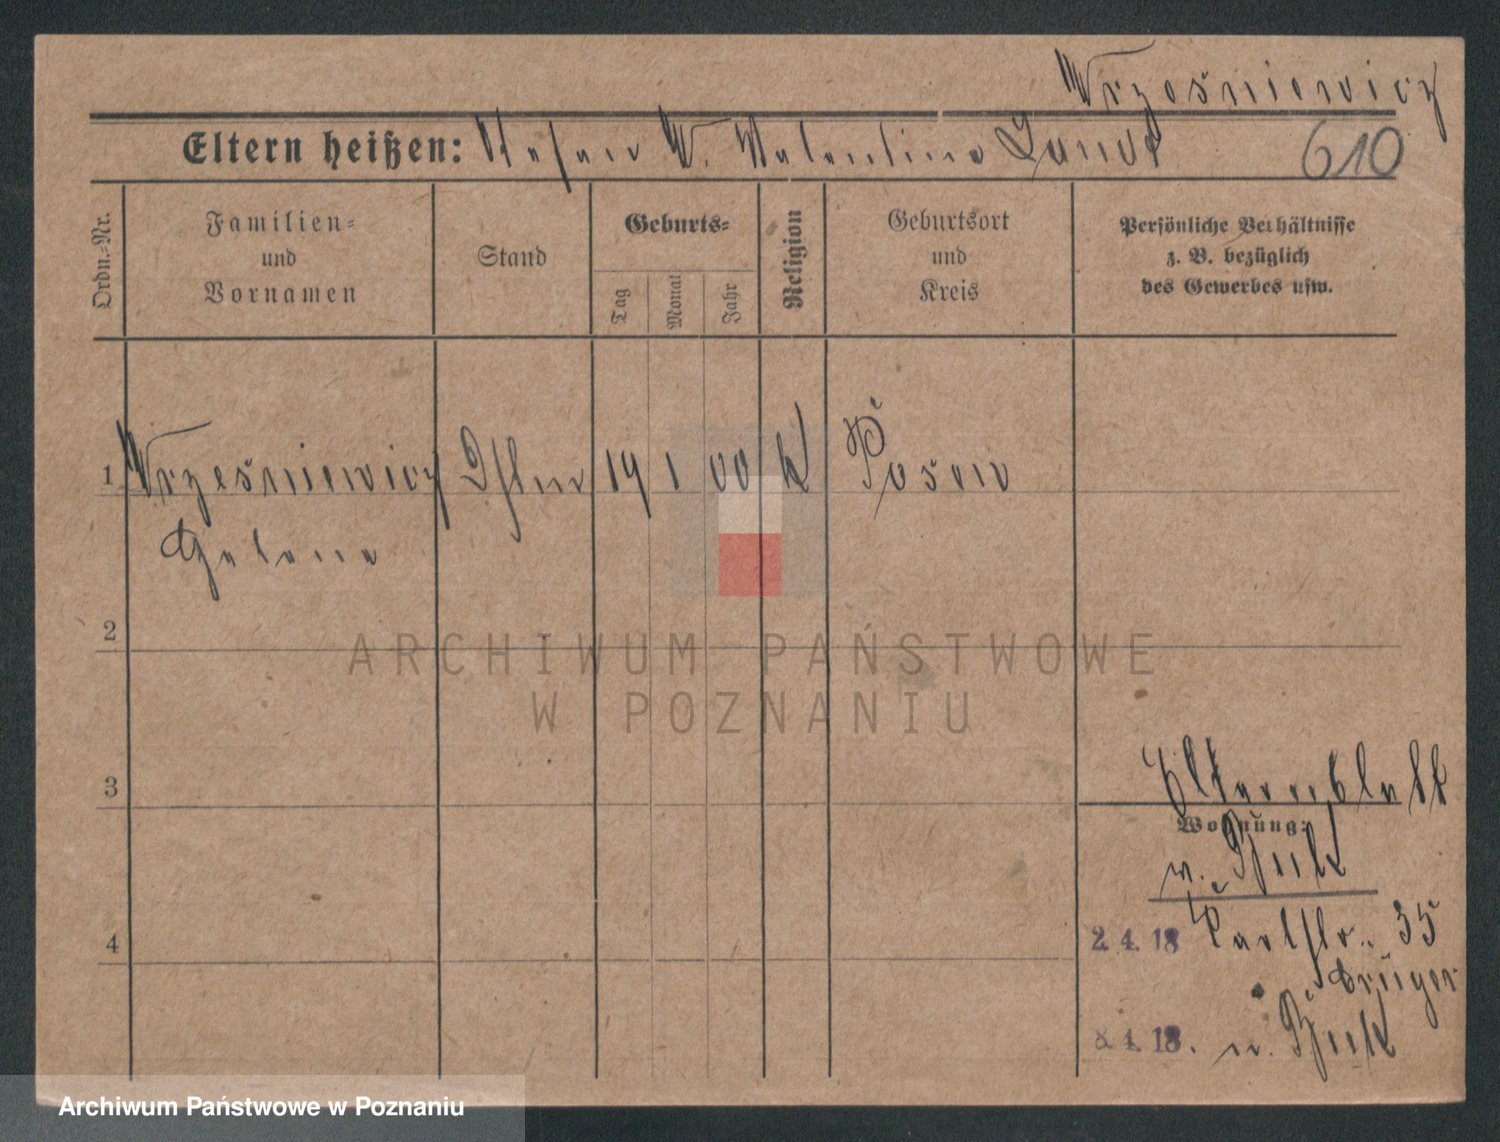 Wrześniewicz
Eltern heißen: Stefan W. Valentina Landt
610
Ordn.-Nr.
Familien-
und
Vornamen
Stand
Geburts-
Tag
Monat
Jahr
Religion
Geburtsort
und
Kreis
Persönliche Verhältnisse
z. B. bezüglich
des Gewerbes usw.
1 Wrześniewicz 19 1 00 k Posen
Helene
2
ARCHIWUM PAŃSTWOWE
W POZNANIU
3
Elternblatt
Wohnung:
n. Buk
4
2. 4. 18 Karlstr. 35
Krüger
8. 4. 18. n. Buk
Archiwum Państwowe w Poznaniu